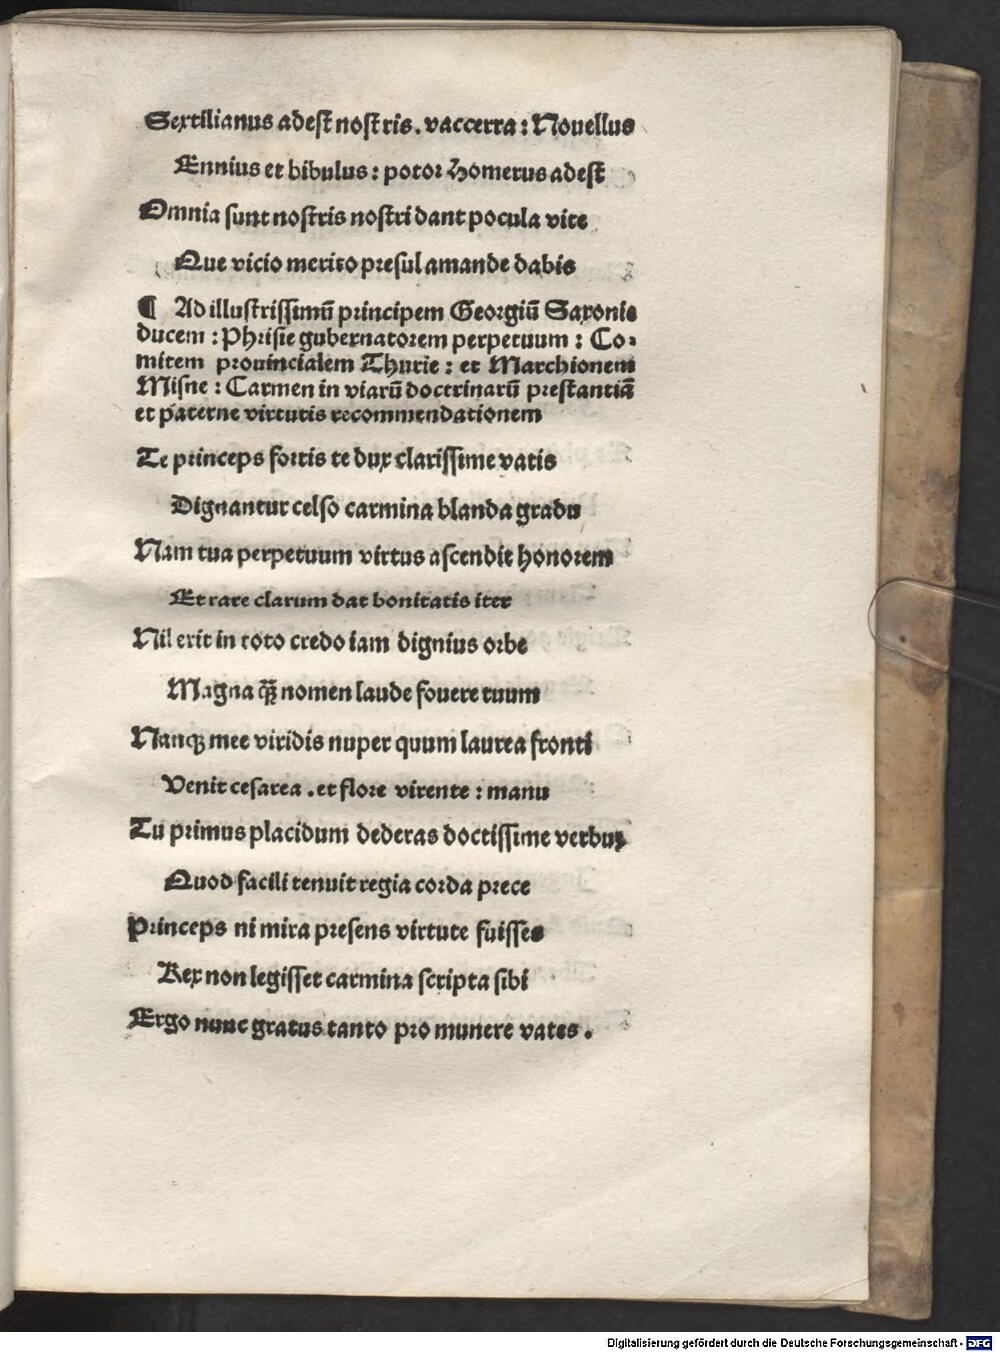 Sextilianus adest nostris. vaccerra: Nouellus
Ennius et bibulus: potor Homerus adest
Omnia sunt nostris nostri dant pocula vite
Que vicio merito presul amande dabis
¶ Ad illustrissimū principem Georgiū Saxonie
ducem: Phrisie gubernatorem perpetuum: Co-
mitem prouincialem Thurie: et Marchionem
Misne: Carmen in viarū doctrinarū prestantiā
et paterne virtutis recommendationem
Te princeps fortis te dux clarissime vatis
Dignantur celso carmina blanda gradu
Nam tua perpetuum virtus ascendit honorem
Et rare clarum dat bonitatis iter
Nil erit in toto credo iam dignius orbe
Magna qȝ nomen laude fouere tuum
Nanqȝ mee viridis nuper quum laurea fronti
Venit cesarea. et flore virente: manu
Tu primus placidum dederas doctissime verbuȝ
Quod facili tenuit regia corda prece
Princeps ni mira presens virtute fuisses
Rex non legisset carmina scripta sibi
Ergo nunc gratus tanto pro munere vates.
Digitalisierung gefördert durch die Deutsche Forschungsgemeinschaft - DFG